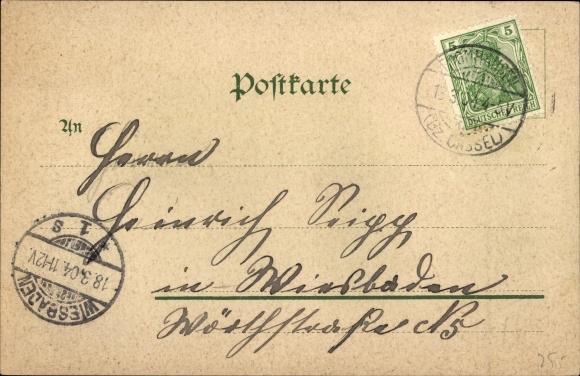 Postkarte
5 5
DEUTSCHES REICH
(BZ. CASSEL)
An
Herrn
Heinrich Seipp
in Wiesbaden
Wörthstraße N5
WIESBADEN
18.3.04. 11-12V.
1 S
25.-